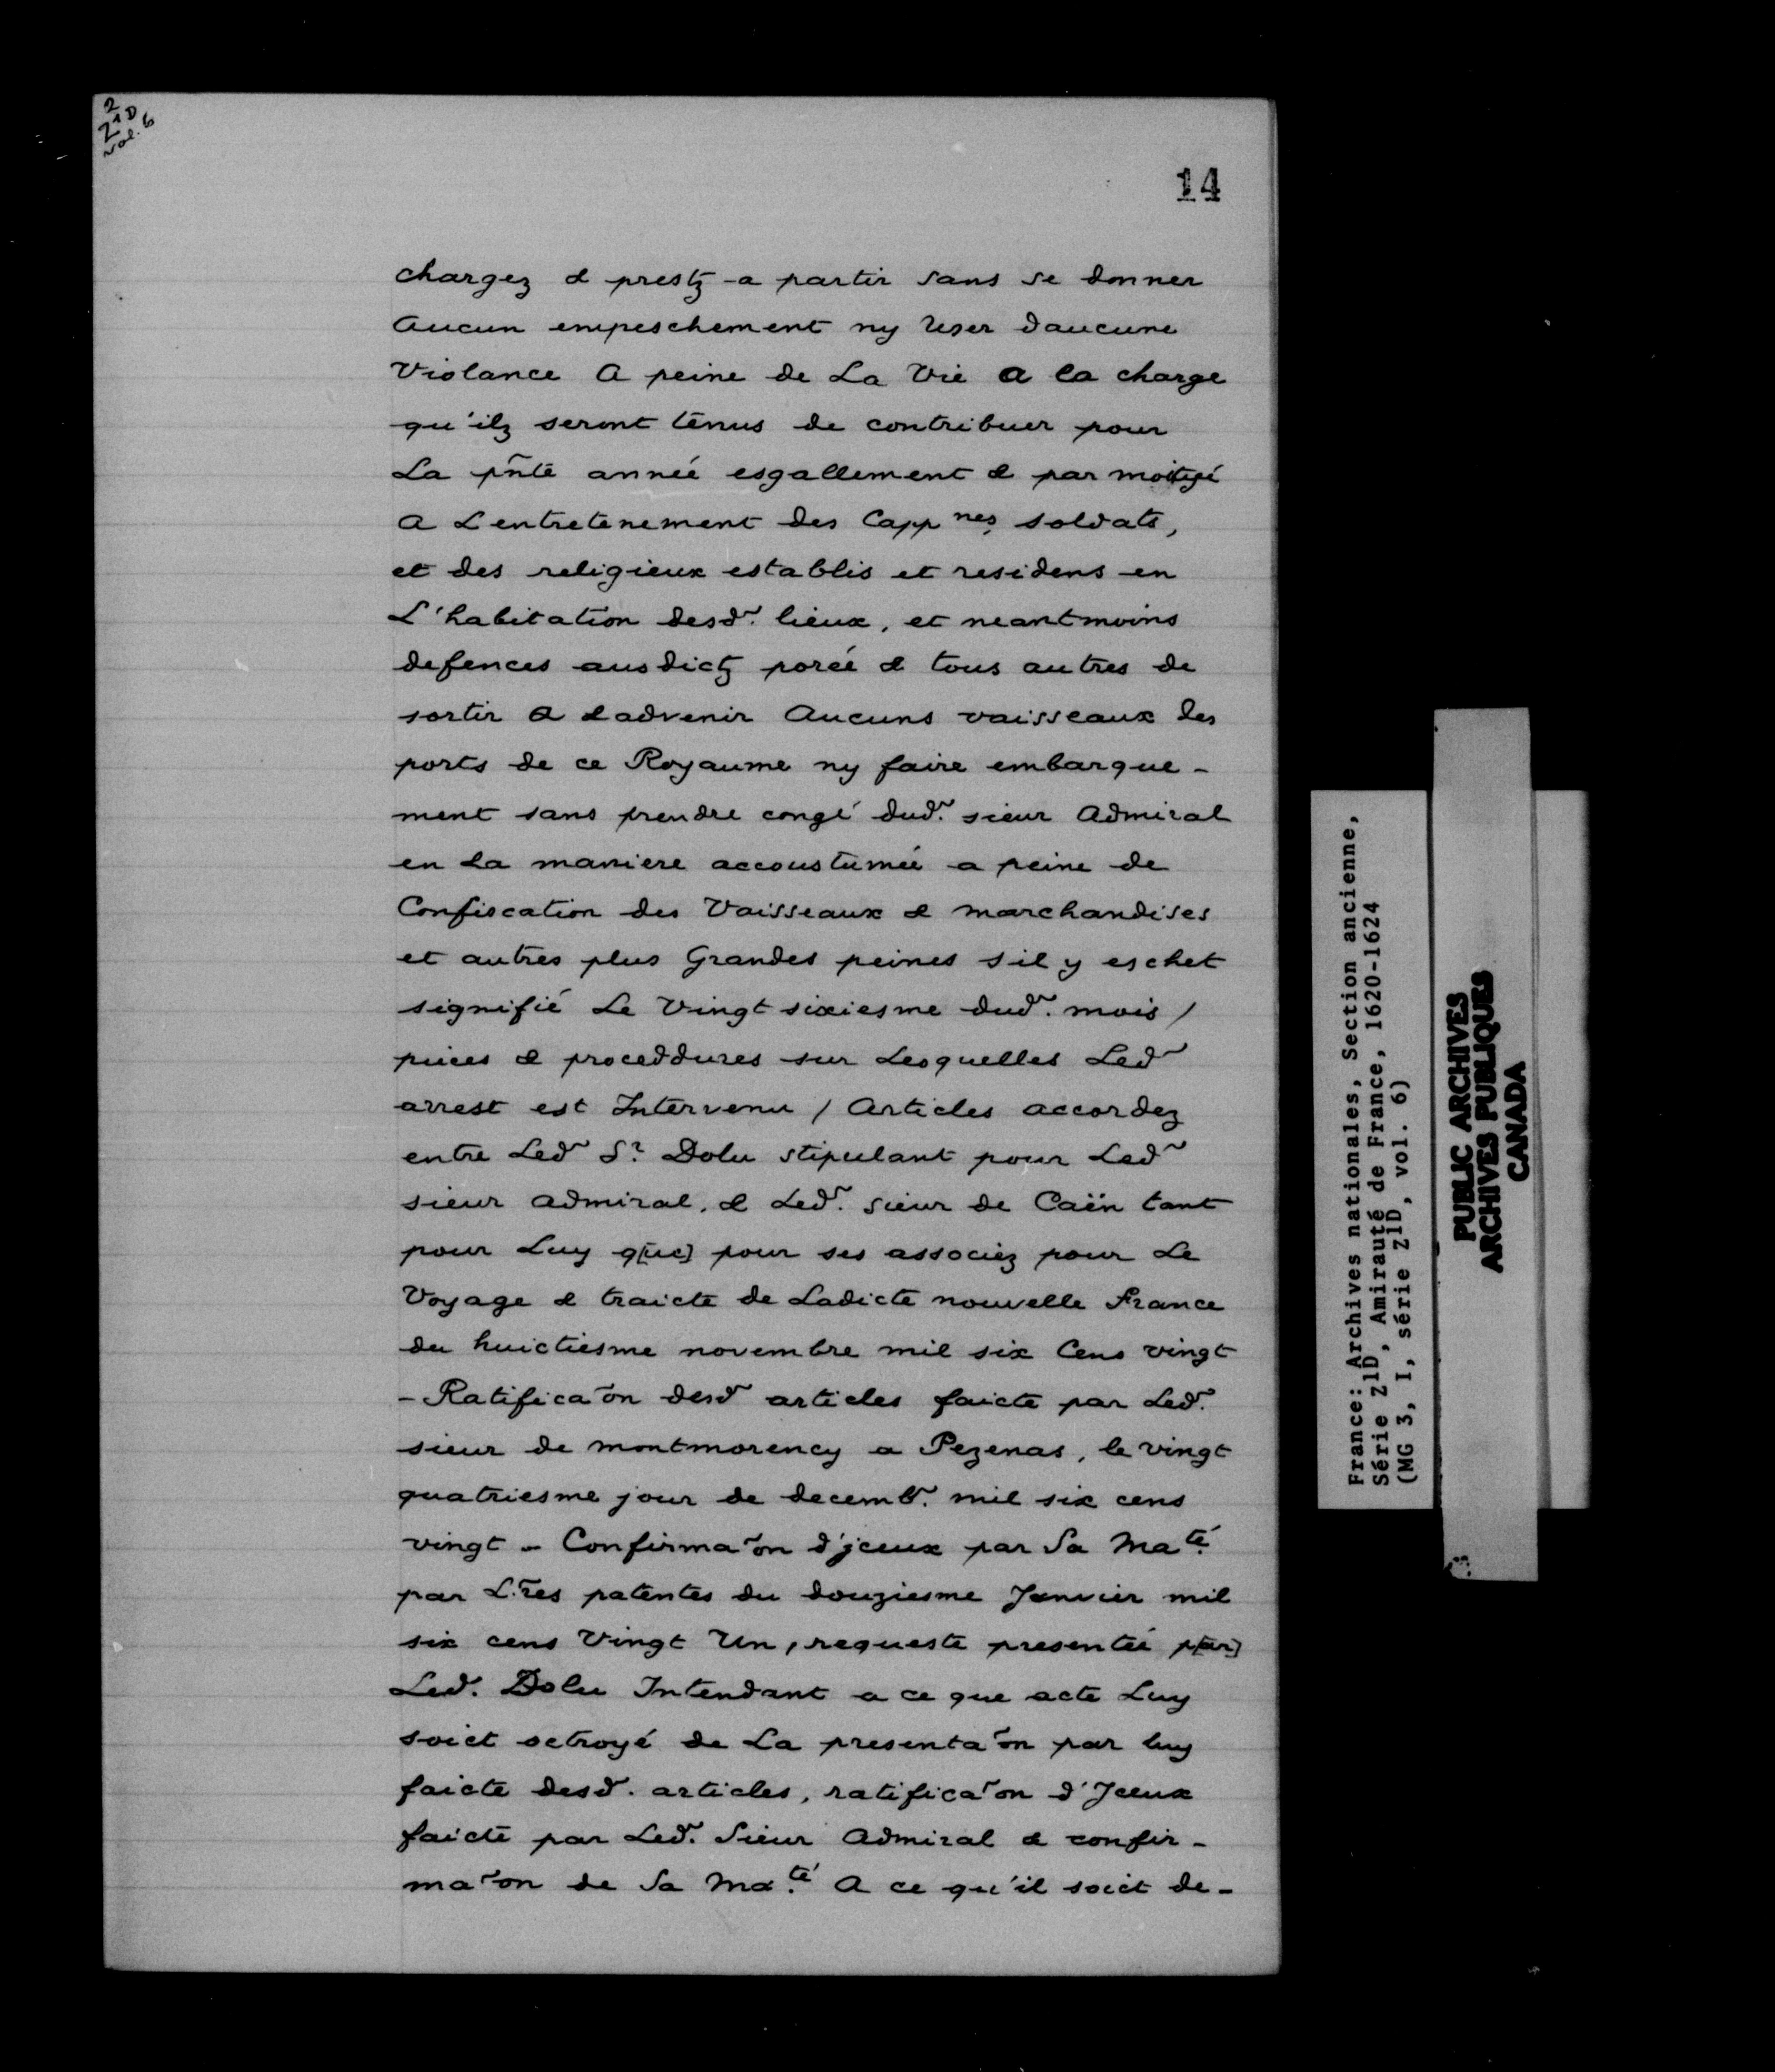 2
Z1D
vol. 6
14
chargez & prestz a partir sans se donner
Aucun empeschement ny User daucune
Violance A peine de La Vie A la charge
qu'ilz seront tenus de contribuer pour
La pñte année esgallement & par moityé
A Lentretenement des Cappnes soldats,
et des religieux establis et residens en
L'habitation desd. lieux, et neantmoins
defences ausdictz porée & tous autres de
sortir A Ladvenir Aucuns vaisseaux des
ports de ce Royaume ny faire embarque-
ment sans prendre congé dud. sieur Admiral
en La maniere accoustumée a peine de
Confiscation des Vaisseaux & marchandises
et autres plus Grandes peines s il y eschet
signifié Le Vingt sixiesme dud. mois /
pieces & proceddures sur Lesquelles Led
arrest est Intervenu / Articles accordez
entre Led Sr. Dolu stipulant pour Led
sieur Admiral, & Led. sieur de Caën tant
pour Luy q[ue] pour ses associez pour Le
Voyage & traicte de Ladicte nouvelle France
du huictiesme novembre mil six Cens vingt
- Ratifica~on desd articles faicte par Led.
sieur de montmorency a Pezenas, le vingt
quatriesme jour de decemb. mil six cens
vingt - Confirma~on d'jceux par Sa Ma.té
par L~res patentes du douziesme Janvier mil
six cens Vingt Un, requeste presentée p[ar]
Led. Dolu Intendant a ce que acte Luy
soict octroyé de La presenta~on par luy
faicte desd. articles, ratifica~on d'Jceux
faicte par Led. Sieur Admiral & confir-
ma~on de Sa Ma.té A ce qu'il soict de-
France: Archives nationales, Section ancienne,
Série Z1D, Amirauté de France, 1620-1624
(MG 3, I, série Z1D, vol. 6)
PUBLIC ARCHIVES
ARCHIVES PUBLIQUES
CANADA